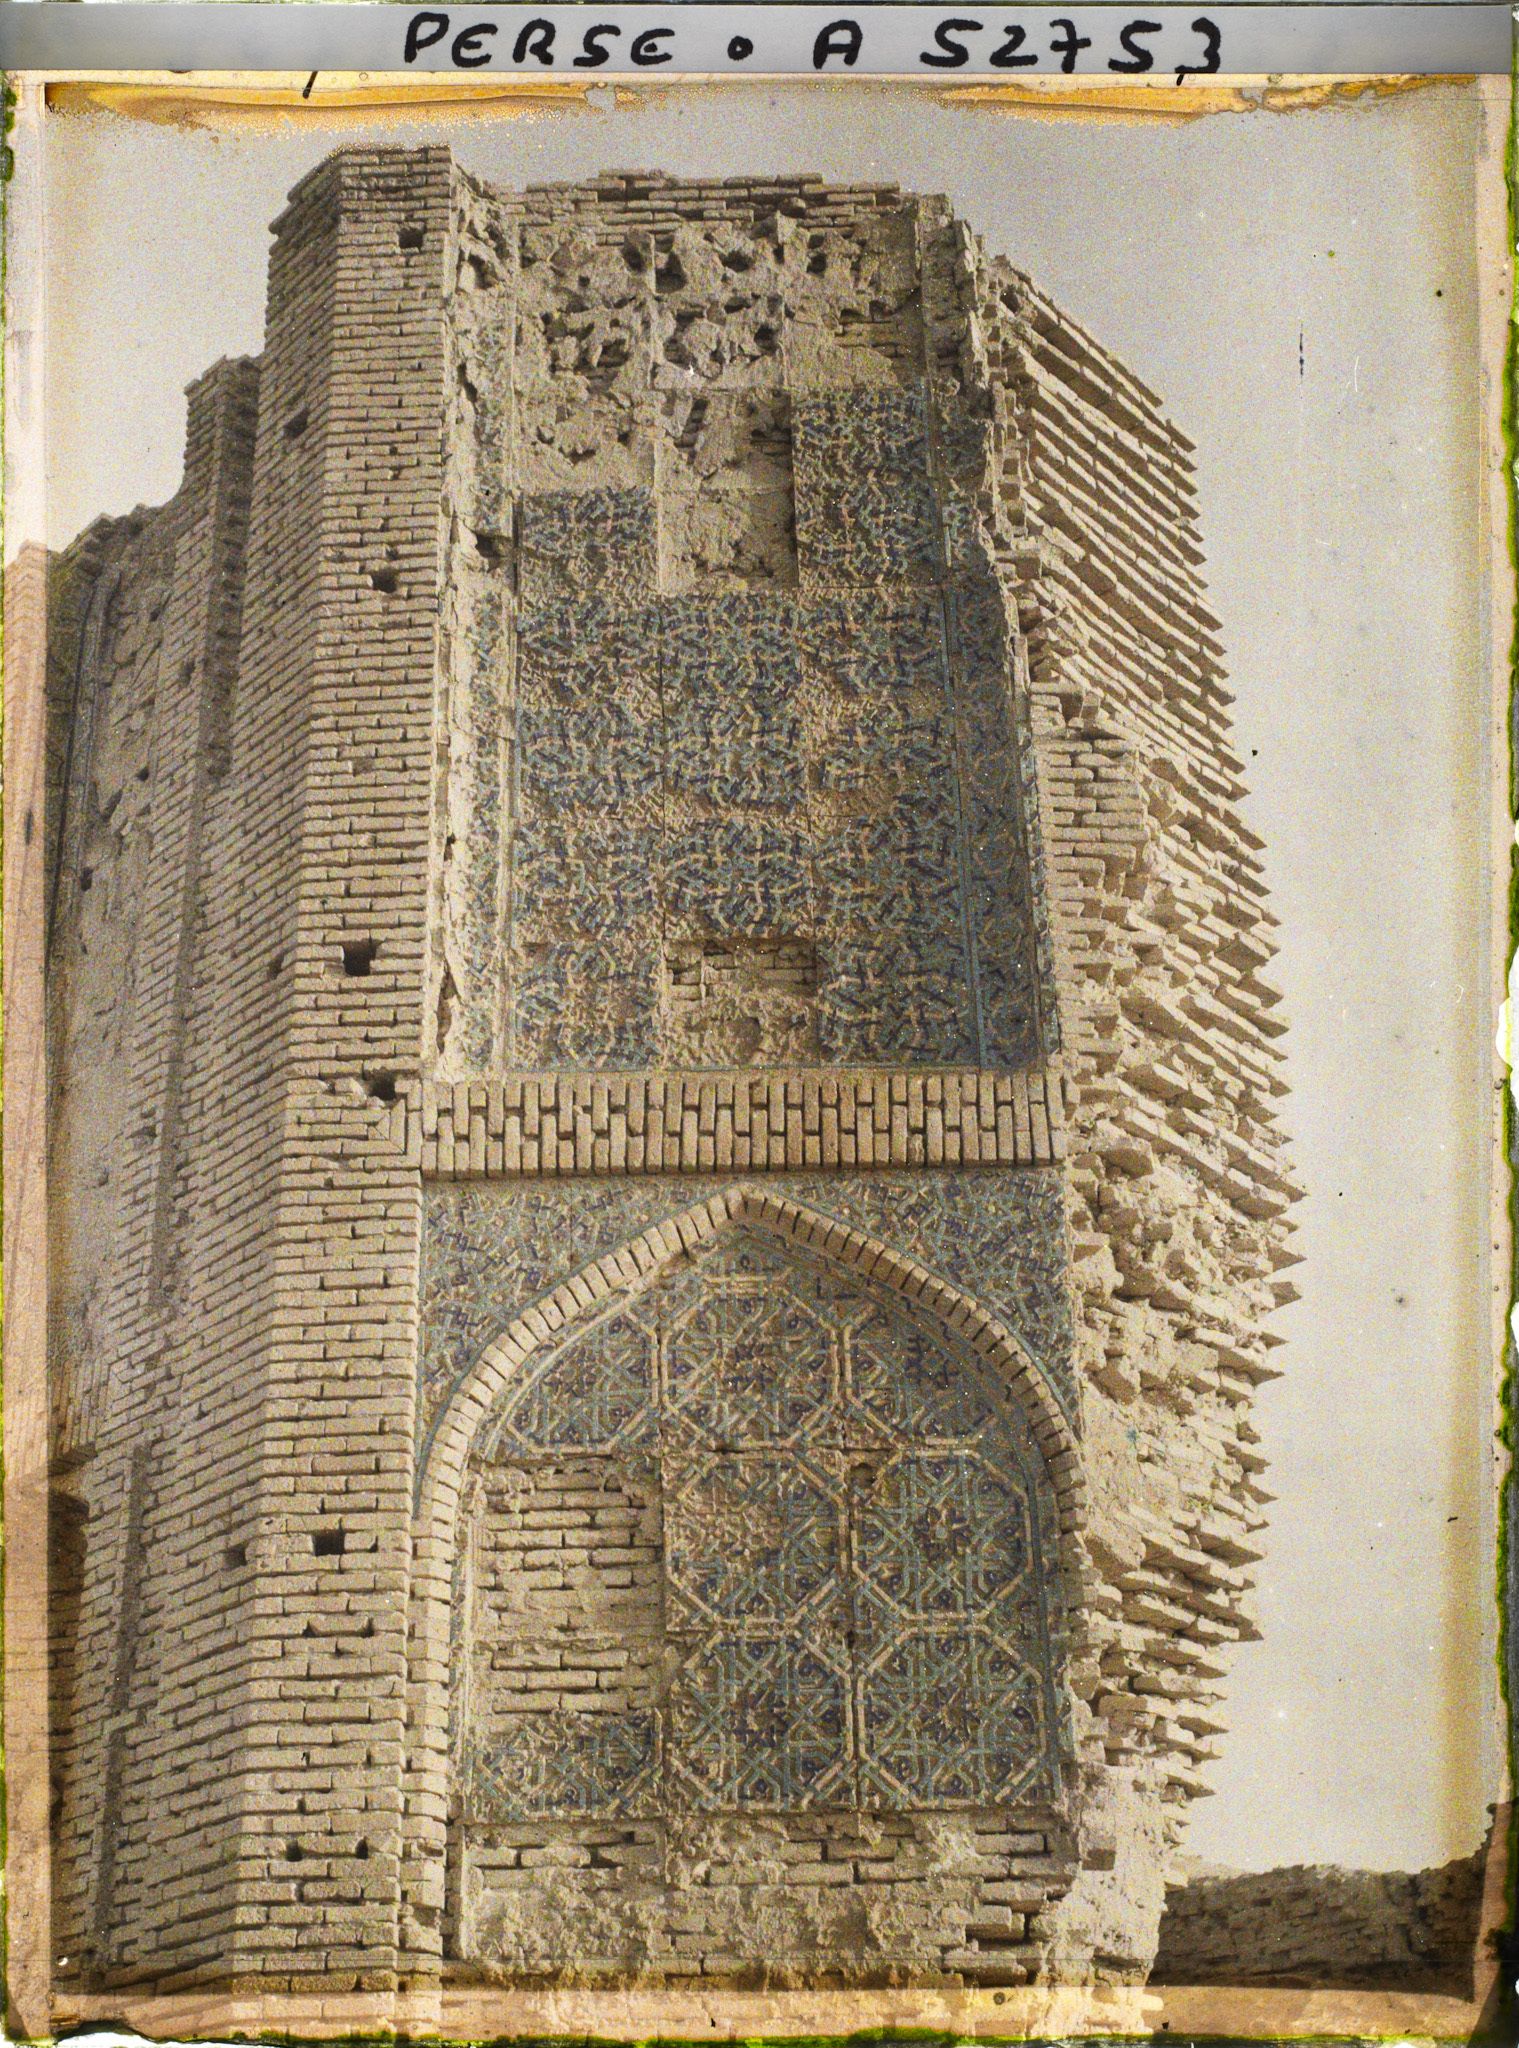 PERSE • A 52753